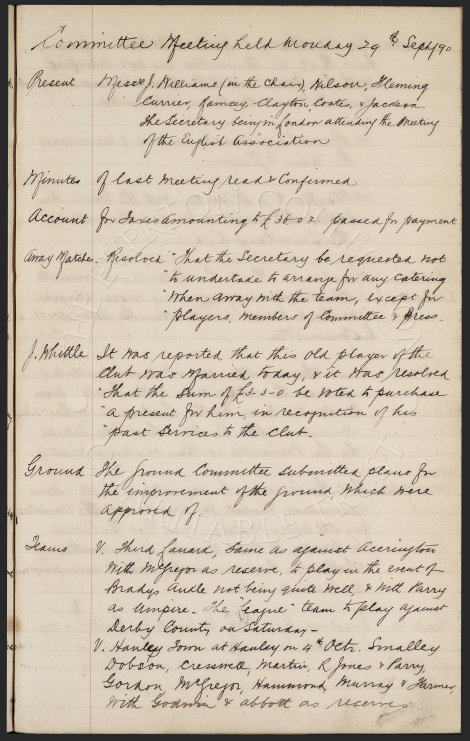 Committee Meeting held Monday 29th Sept/90
Present Messrs J. Williams (in the Chair), Wilson, Fleming
Currier, Ramsey, Clayton, Coates, & Jackson.
The Secretary being in London attending the Meeting
of the English Association
Minutes of last Meeting read & Confirmed
Account for Taxes Amounting to £36.0.2. passed for payment
Away Matches. Resolved "That the Secretary be requested not
"to undertake to arrange for any Catering
"When Away with the team, except for
"players, members of Committee & Press.
J. Whittle It was reported that this old player of the
Club was Married today, & it was resolved
"That the Sum of £3-3-0 be Voted to purchase
"a present for him, in recognition of his
"past Services to the Club.
Ground The Ground Committee Submitted plans for
the improvement of the Ground which were
Approved of.
Teams V. Third Lanark, Same as against Accrington
With McGregor as reserve, to play in the event of
Bradys Ancle not being quite well, & with Parry
as Umpire. The "League" team to play against
Derby County on Saturday -
V. Hanley Town at Hanley on 4th Octr. Smalley
Dobson, Cresswell, Martin, R Jones & Parry,
Gordon, McGregor, Hammond, Murray &
With Godwin & Abbott as reserves
THE EVERTON COLLECTION
CHARITABLE TRUST